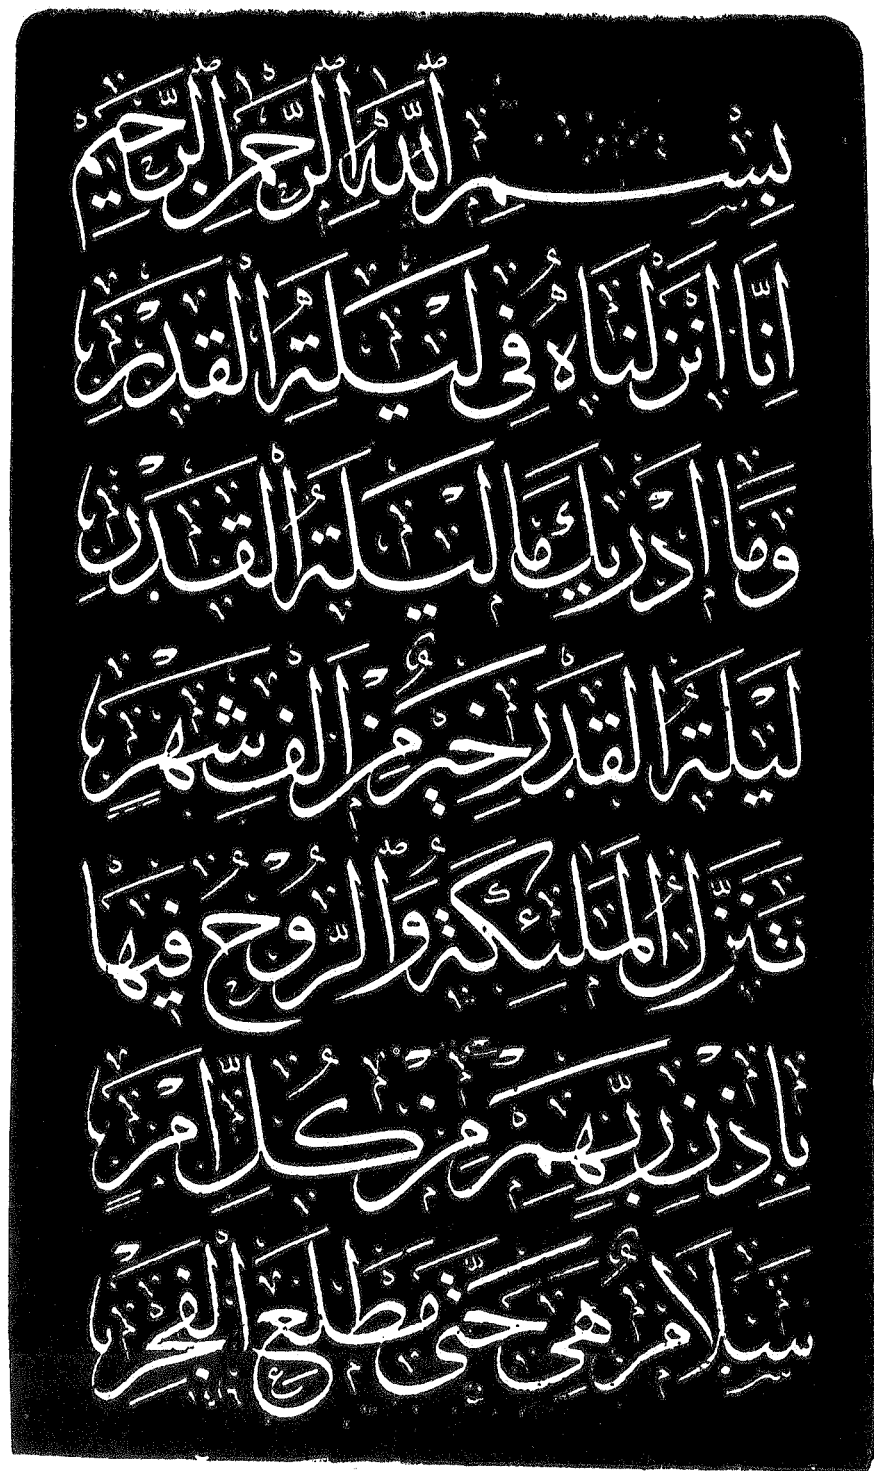 بِسْمِ اللهِ الرَّحْمٰنِ الرَّحِيْمِ
اِنَّا اَنْزَلْنَاهُ فِى لَيْلَةِ الْقَدْرِ
وَمَا اَدْرٰيكَ مَا لَيْلَةُ الْقَدْرِ
لَيْلَةُ الْقَدْرِ خَيْرٌ مِنْ اَلْفِ شَهْرٍ
تَنَزَّلُ الْمَلٰئِكَةُ وَالرُّوْحُ فِيْهَا
بِاِذْنِ رَبِّهِمْ مِنْ كُلِّ اَمْرٍ
سَلَامٌ هِىَ حَتّٰى مَطْلَعِ الْفَجْرِ